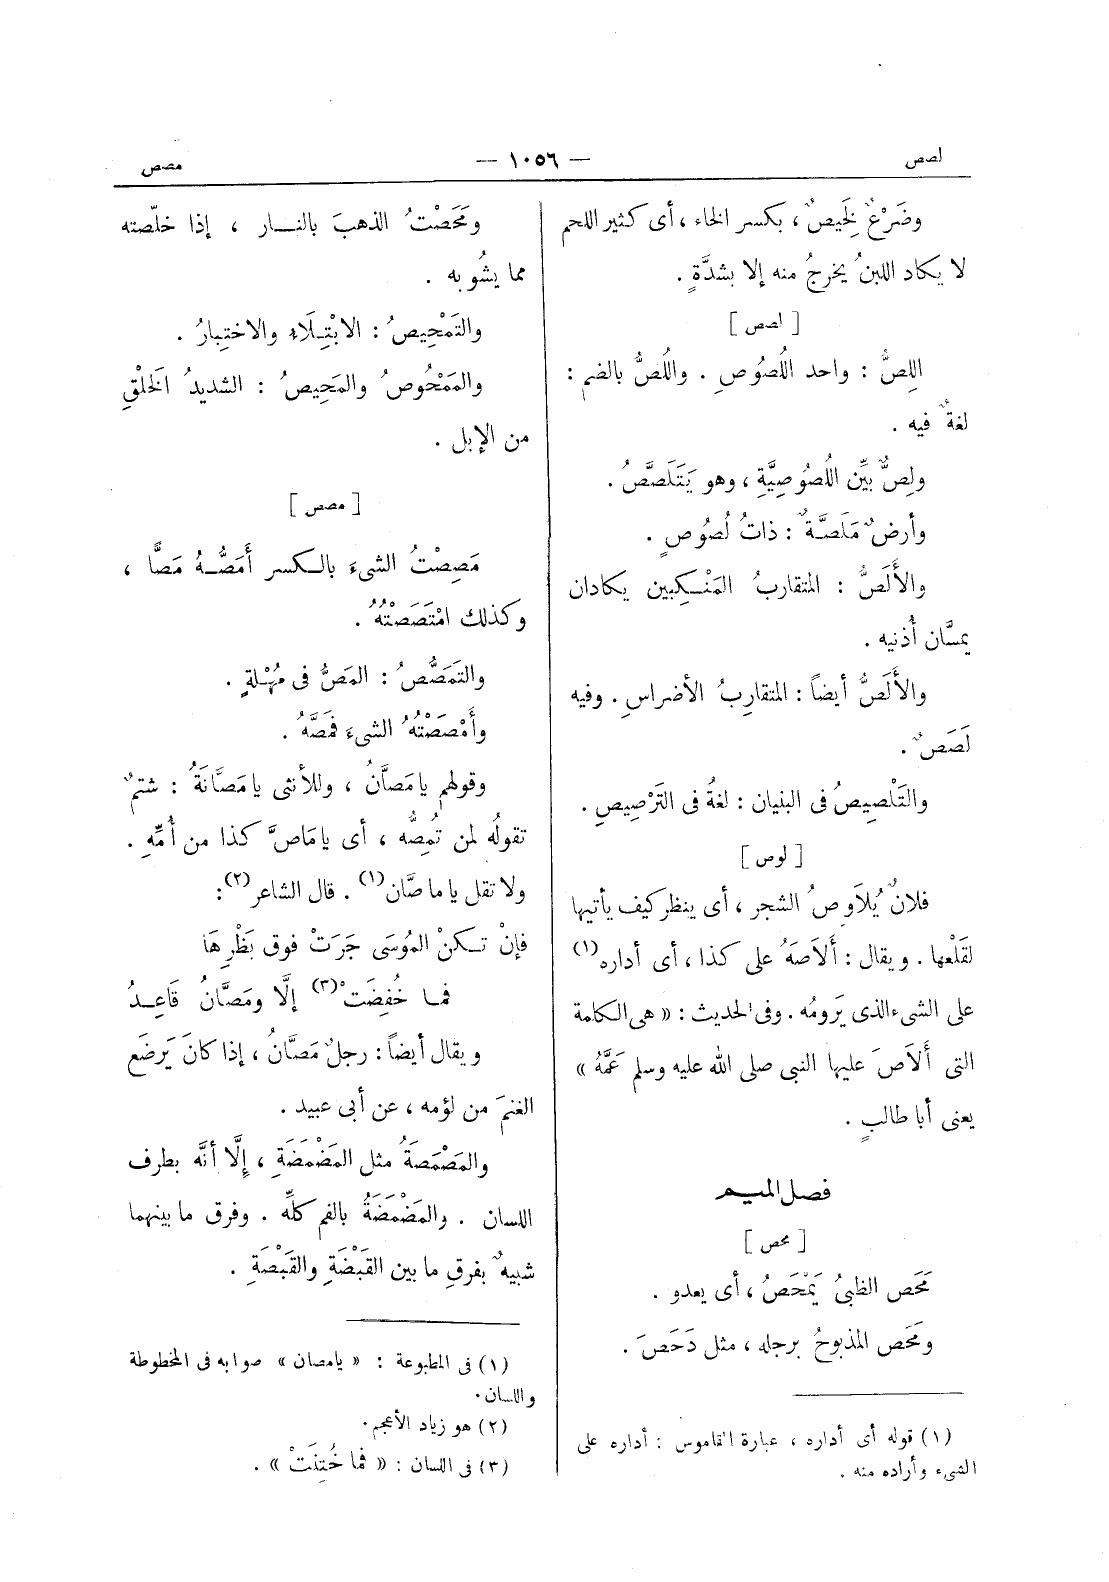 لصص
— ١٠٥٦ —
مصص
وضَرْعٌ لَخِيصٌ ، بكسر الخاء ، أى كثير اللحم
لا يكاد اللبنُ يخرجُ منه إلا بشدَّةٍ .
[ لصص ]
اللِصُّ : واحد اللُصُوصِ . واللُصُّ بالضم :
لغةٌ فيه .
ولِصٌّ بيِّن اللُصُوصِيَّةِ ، وهو يَتَلَصَّصُ .
وأرضٌ مَلَصَّةٌ : ذاتُ لُصُوصٍ .
والأَلَصُّ : المتقاربُ المَنْكِبين يكادان
يمسَّان أُذنيه .
والأَلَصُّ أيضاً : المتقارِبُ الأضراسِ . وفيه
لَصَصٌ .
والتَلْصِيصُ فى البنيان : لغةٌ فى التَرْصِيصِ .
[ لوص ]
فلانٌ يُلَاوِصُ الشجر ، أى ينظر كيف يأتيها
لقَلْعها . ويقال : أَلَاصَهُ على كذا ، أى أداره(١)
على الشىء الذى يَرومُه . وفى الحديث : « هى الكلمة
التى أَلَاصَ عليها النبى صلى الله عليه وسلم عَمَّهُ »
يعنى أبا طالبٍ .
فصل الميم
[ محص ]
مَحَص الظبىُ يَمْحَصُ ، أى يعدو .
ومَحَص المذبوحُ برجله ، مثل دَحَصَ .
(١) قوله أى أداره ، عبارة القاموس : أداره على
الشىء وأراده منه .
ومَحَصْتُ الذهبَ بالنار ، إذا خلّصته
مما يشُوبه .
والتَمْحِيصُ : الابْتِلَاءُ والاختِبارُ .
والمَمْحُوصُ والمَحِيصُ : الشديدُ الخَلْقِ
من الإبل .
[ مصص ]
مَصِصْتُ الشىءَ بالكسر أَمَصُّهُ مَصًّا ،
وكذلك امْتَصَصْتُهُ .
والتَمَصُّصُ : المَصُّ فى مُهْلةٍ .
وأَمْصَصْتُهُ الشىءَ فَمَصَّهُ .
وقولهم يا مَصَّانُ ، وللأنثى يا مَصَّانَةُ : شتمٌ
تقولُه لمن تُمِصُّه ، أى يا مَاصَّ كذا من أُمِّهِ .
ولا تقل يا ماصَّان(١) . قال الشاعر(٢):
فإنْ تكنْ المُوسَى جَرَتْ فوق بَظْرِهَا
فما خُفِضَتْ(٣) إلَّا ومَصَّانُ قَاعِدُ
ويقال أيضاً : رجلٌ مَصَّانُ ، إذا كانَ يَرضَع
الغنمَ من لؤمه ، عن أبى عبيد .
والمَصْمَصَةُ مثل المَضْمَضَةِ ، إلَّا أنَّه بطرف
اللسان . والمَضْمَضَةُ بالفم كلِّه . وفرق ما بينهما
شبيهٌ بفرقِ ما بين القَبْضَةِ والقَبْصَةِ .
(١) فى المطبوعة : « يامصان » صوابه فى المخطوطة
واللسان .
(٢) هو زياد الأعجم .
(٣) فى اللسان : « فما خُتِنَتْ » .